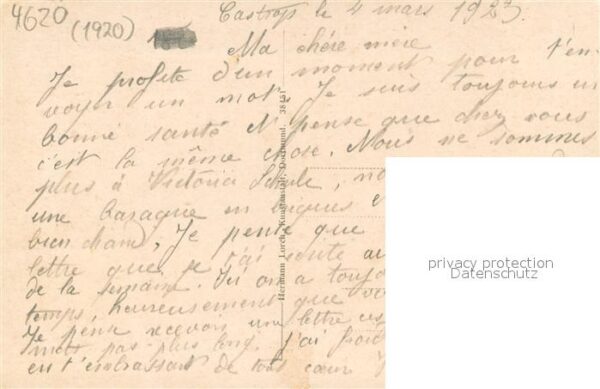 4620
(1920)
Castrop le 4 mars 1923.
Ma chère mère
Je profite d'un moment pour t'en-
voyer un mot. Je suis toujours en
bonne santé et pense que chez vous
c'est la même chose. Nous ne sommes
plus à Victoria Schule,
une baraque en briques
bien chaud. Je pense que
lettre que je
de la semaine. Ici on a toujo
temps, heureusement que
Je pense recevoir une lettre
mets pas plus long. j'ai froid
en t'embrassant de tout cœur
Hermann Lorch, Kunstanstalt, Dortmund. 38151
privacy protection
Datenschutz